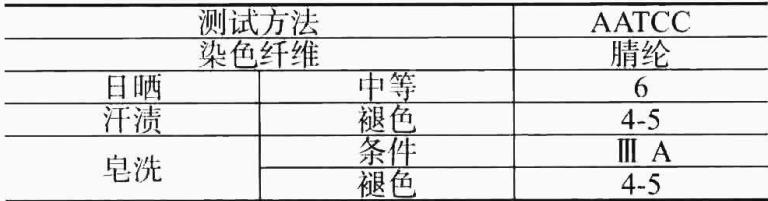 测试方法 AATCC
染色纤维 腈纶
日晒 中等 6
汗渍 褪色 4-5
皂洗 条件 Ⅲ A
褪色 4-5